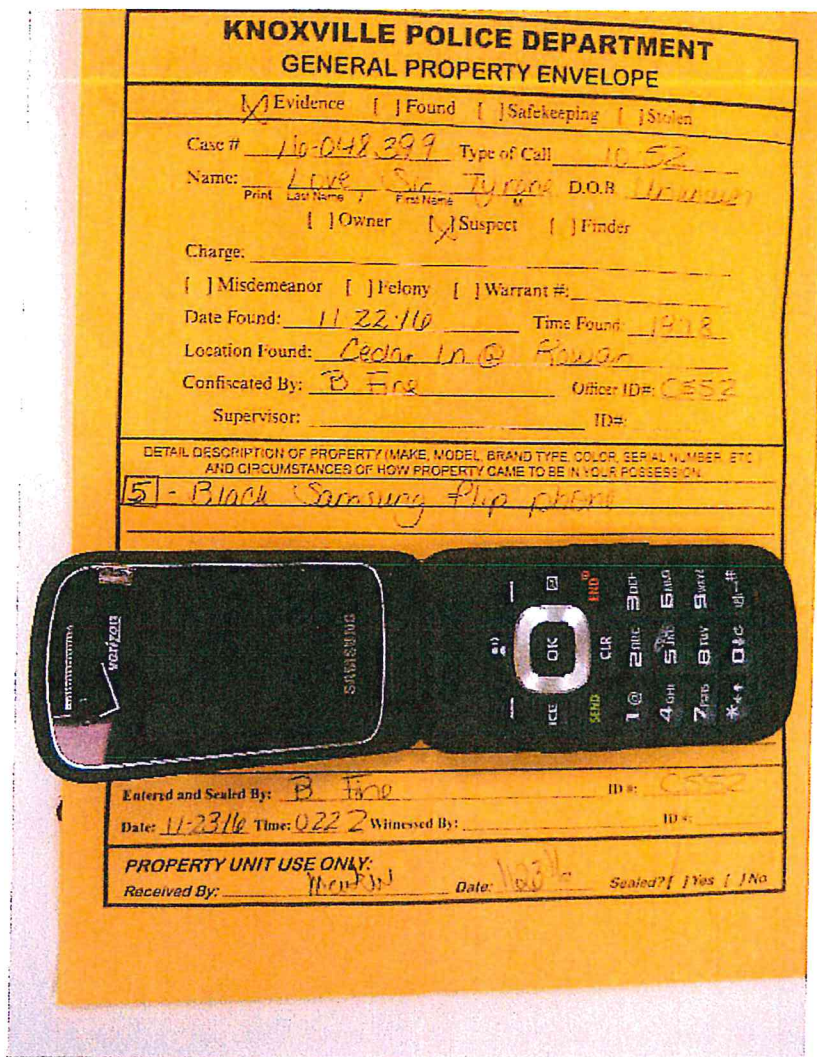 KNOXVILLE POLICE DEPARTMENT
GENERAL PROPERTY ENVELOPE
[X] Evidence [ ] Found [ ] Safekeeping [ ] Stolen
Case # 16-048399 Type of Call 10-52
Name: Love Sir Tyrone D.O.B. Unknown
Print Last Name / First Name M
[ ] Owner [X] Suspect [ ] Finder
Charge:
[ ] Misdemeanor [ ] Felony [ ] Warrant #:
Date Found: 11-22-16 Time Found:
Location Found: Cedar Ln @ Rowan
Confiscated By: B Fine Officer ID#:
Supervisor: ID#:
DETAIL DESCRIPTION OF PROPERTY (MAKE, MODEL, BRAND TYPE, COLOR, SERIAL NUMBER, ETC.)
AND CIRCUMSTANCES OF HOW PROPERTY CAME TO BE IN YOUR POSSESSION.
5 - Black Samsung flip phone
verizon
SAMSUNG
ICE OK
SEND CLR END
1 @ 2 ABC 3 DEF
4 GHI 5 JKL 6 MNO
7 PQRS 8 TUV 9 WXYZ
* 0 #
Entered and Sealed By: B Fine ID #:
Date: 11-2316 Time: 0222 Witnessed By: ID #:
PROPERTY UNIT USE ONLY:
Received By: Date: Sealed? [ ] Yes [ ] No